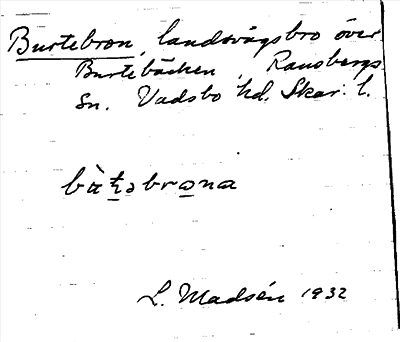 Burtebron, landsvägsbro över
Burtebäcken, Ransbergs
sn. Vadsbo hd. Skar. l.
L. Madsén 1932